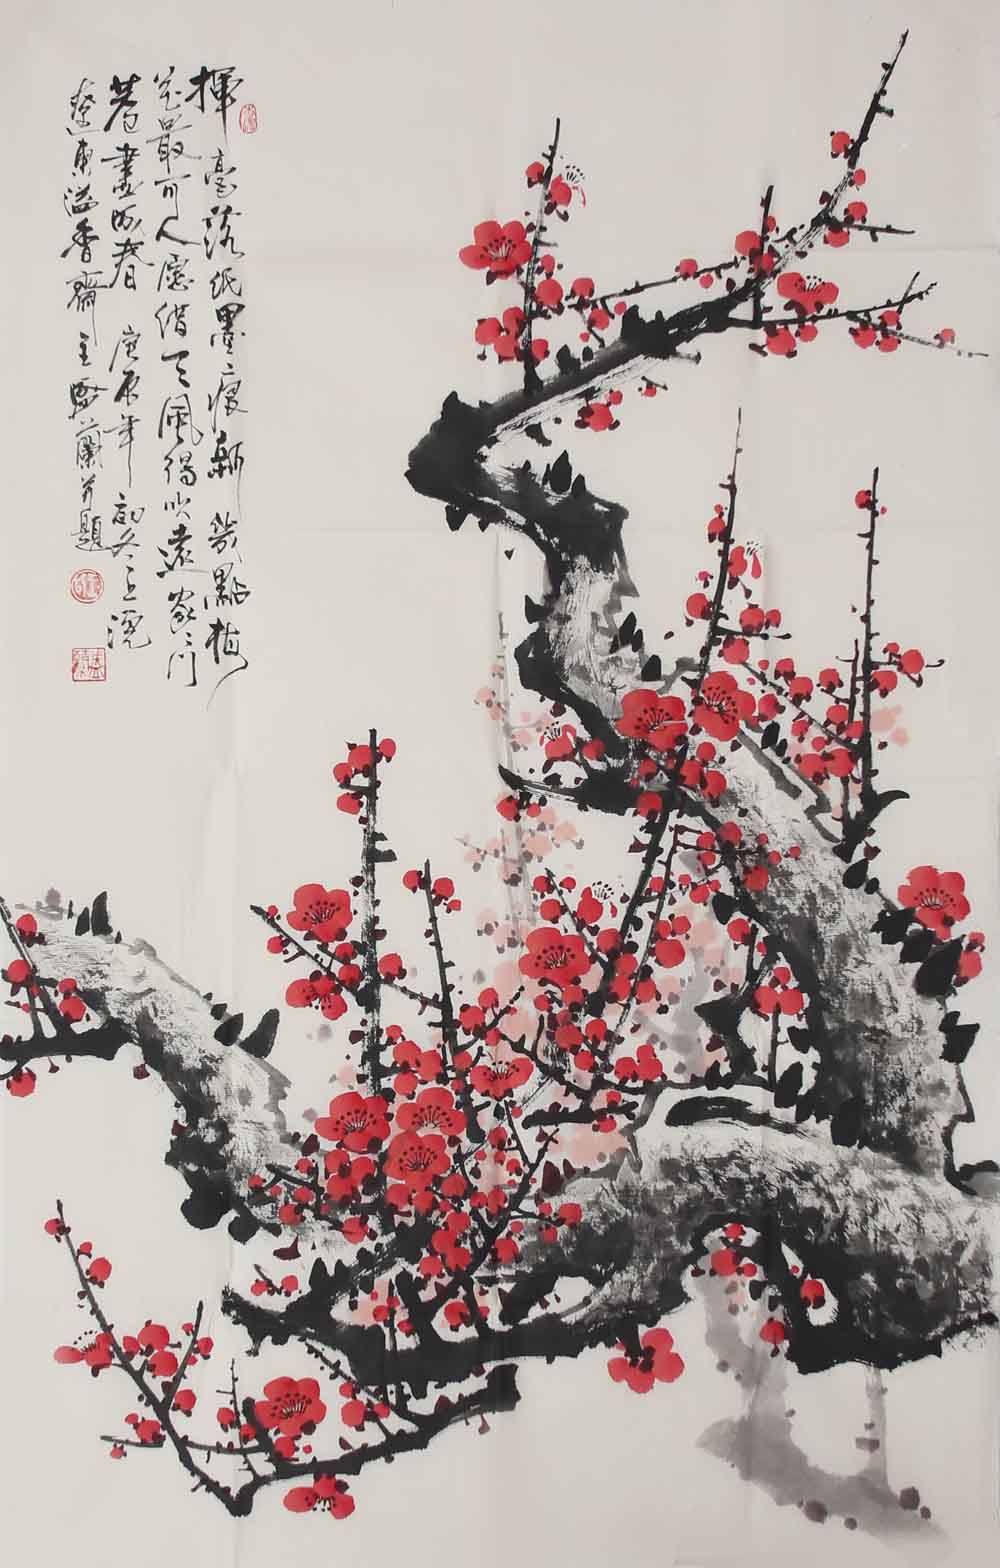 揮毫落紙墨痕新幾點梅
花最可人願借天風得吹遠家家門
巷盡成春 庚辰年初冬上浣
遼東溢香齋主 蘭并題